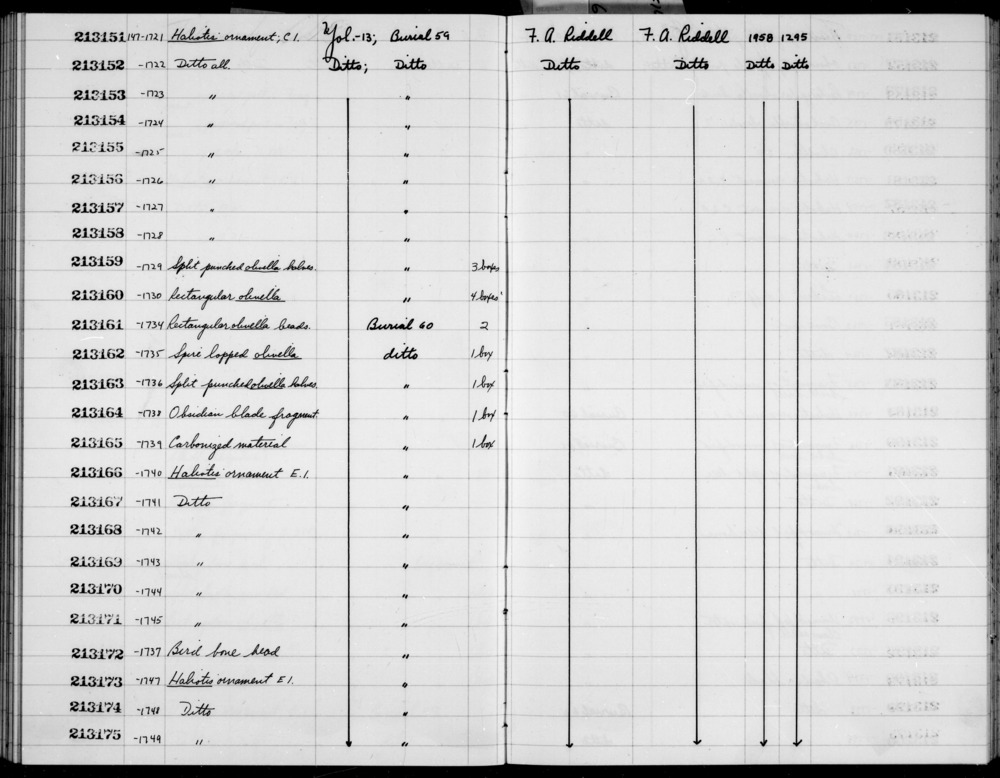 213151 147-1721 Haliotis ornament, C1. Yol.-13; Burial 59 F. A. Riddell F. A. Riddell 1958 1295
213152 -1722 Ditto all. Ditto; Ditto Ditto Ditto Ditto Ditto
213153 -1723 " "
213154 -1724 " "
213155 -1725 " "
213156 -1726 " "
213157 -1727 " "
213158 -1728 " "
213159 -1729 Split punched olivella halves. " 3 boxes
213160 -1730 Rectangular olivella " 4 boxes
213161 -1734 Rectangular olivella beads. Burial 60 2
213162 -1735 Spire lopped olivella ditto 1 box
213163 -1736 Split punched olivella halves. " 1 box
213164 -1738 Obsidian blade fragment " 1 box
213165 -1739 Carbonized material " 1 box
213166 -1740 Haliotis ornament E.1. "
213167 -1741 Ditto "
213168 -1742 " "
213169 -1743 " "
213170 -1744 " "
213171 -1745 " "
213172 -1737 Bird bone bead "
213173 -1747 Haliotis ornament E1. "
213174 -1748 Ditto "
213175 -1749 " "